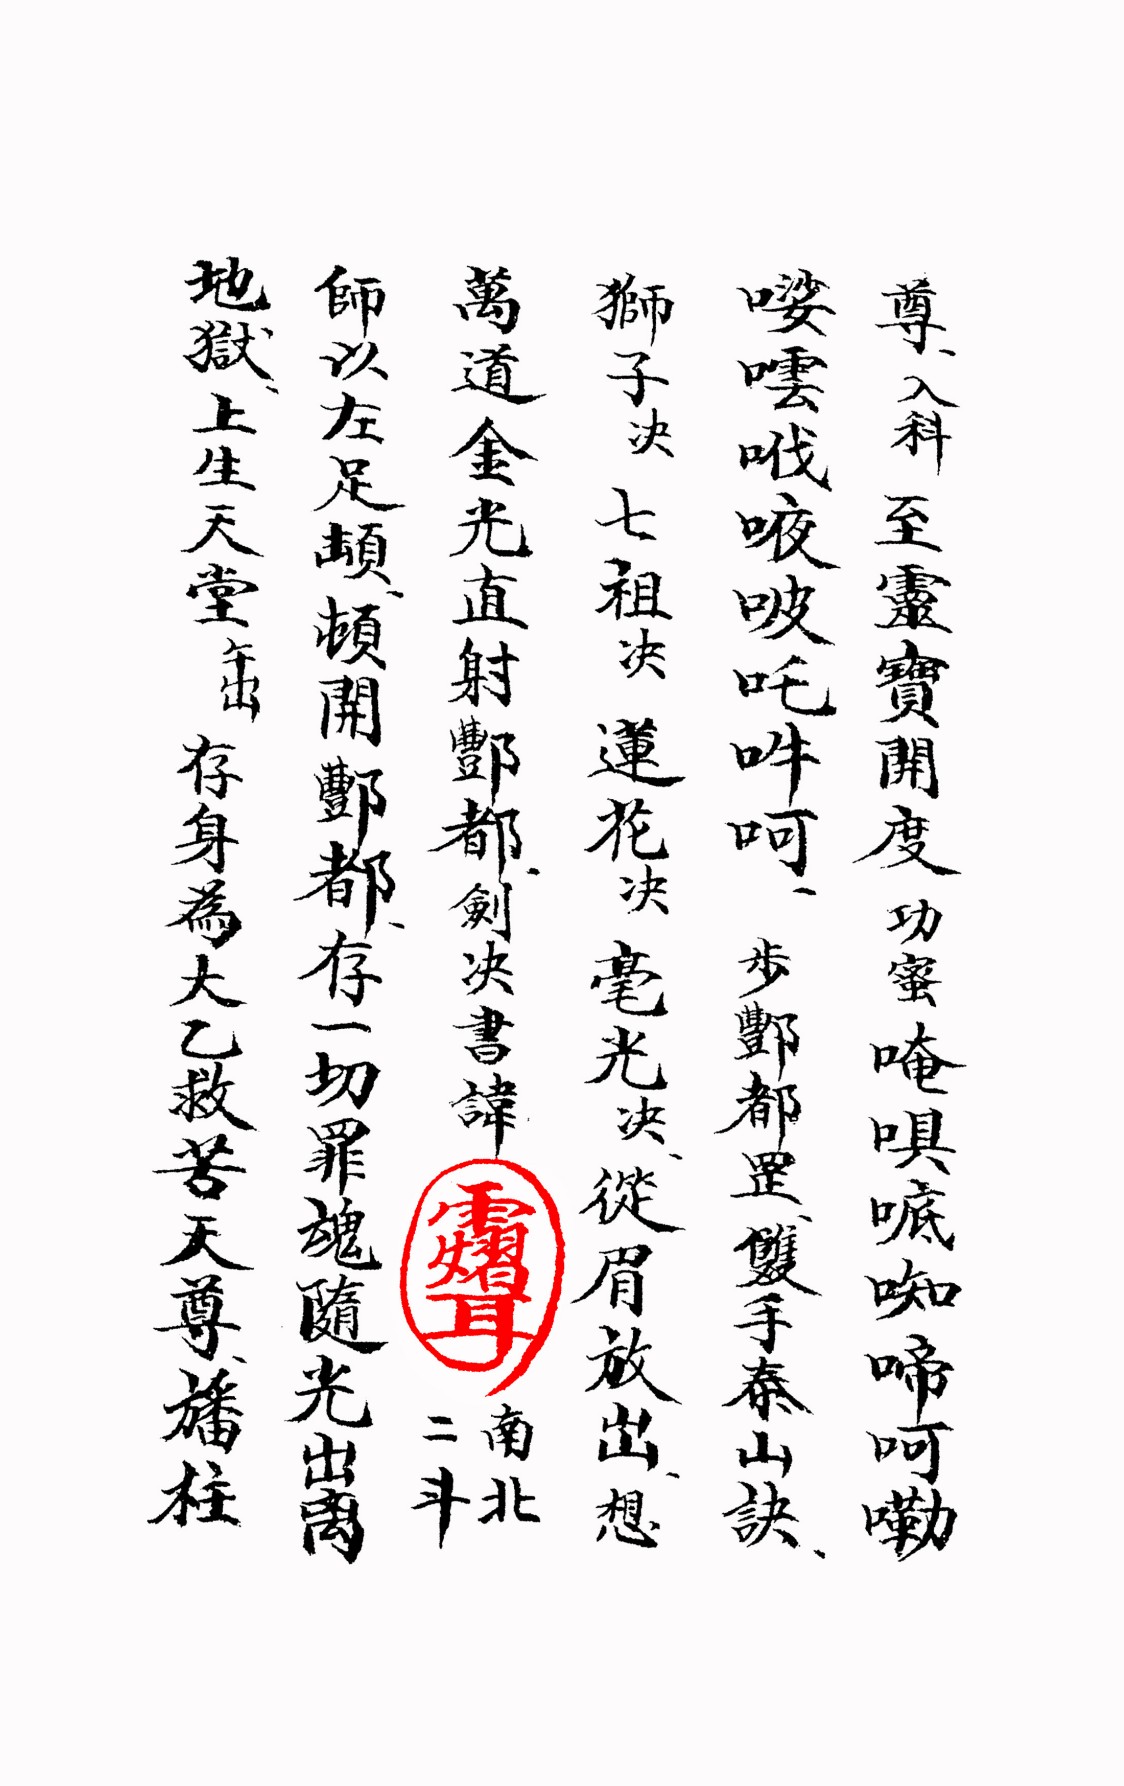 尊、入科 至靈寶開度 功蜜 唵㖵嗞㗌啼呵嘞
𠹌囈㖑㖡㗞吒吽呵、 步酆都罡、雙手泰山訣、
獅子决 七祖决 蓮花决 毫光决、從眉放出、想
萬道金光直射酆都、劍决書諱 南北二斗
師以左足頓、頓開酆都、存一切罪魂隨光出离
地獄、上生天堂 午出 存身為大乙救苦天尊、旛柱